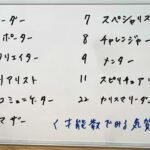 ーダー
ポーター
クリエイター
リアリスト
コミュニケーター
マザー
7 スペシャリス
8 チャレンジャー
9 メンター
11 スピリチュア
22 カリスマリーダー
く才能数でみる気質